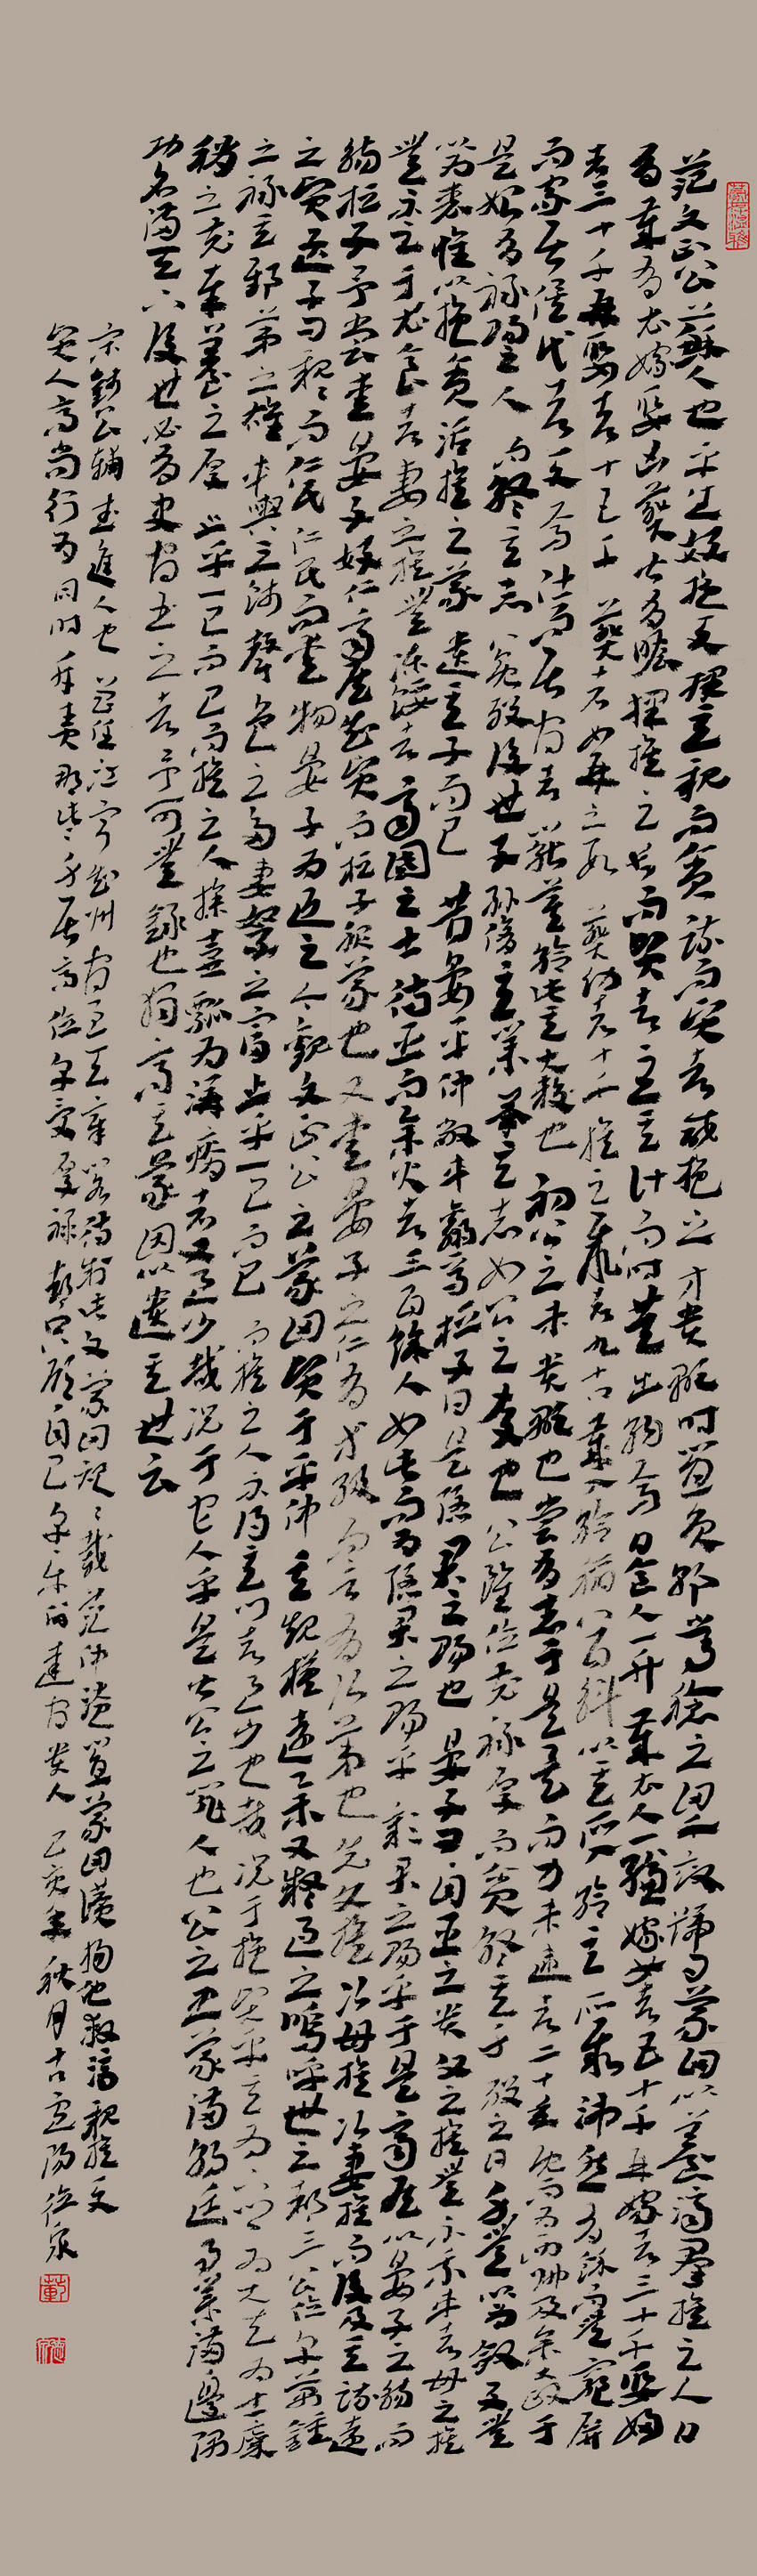 范文正公蘇人也平生好施與擇其親而貧疏而賢者咸施之方貴顯時置負郭常稔之田千畝號曰義田以養濟群族之人日
有食歲有衣嫁娶凶葬皆有贍擇族之長而賢者主其計而時共出納焉日食人一升歲衣人一縑嫁女者五十千再嫁者三十千娶婦
者三十千再娶者十五千葬者如再嫁之數葬幼者十千族之聚者九十口歲入給稻八百斛以其所入給其所聚沛然有餘而無窮屏
而家居俟代者與焉仕而居官者罷莫給此其大較也初公之未貴顯也嘗有志于是矣而力未逮者二十年既而為西帥及參大政于
是始有祿賜之入而終其志公既歿後世子孫修其業承其志如公之存也公雖位充祿厚而貧終其身歿之日身無以為斂子無
以為喪惟以施貧活族之義遺其子而已昔晏平仲敝車羸馬桓子曰是隱君之賜也晏子曰自臣之貴父之族無不乘車者母之族
無不足于衣食者妻之族無凍餒者齊國之士待臣而舉火者三百餘人如此而為隱君之賜乎彰君之賜乎于是齊侯以晏子之觴而
觴桓子予嘗愛晏子好仁齊侯知賢而桓子服義也又愛晏子之仁有等級而言有次第也先父族次母族次妻族而後及其疏遠
之賢孟子曰親親而仁民仁民而愛物晏子為近之今觀文正公之義田賢于平仲其規模遠舉又疑過之嗚呼世之都三公位享萬鍾
之祿其邸第之雄車輿之飾聲色之多妻孥之富止乎一己而已而族之人不得其門者豈少也哉況于施賢乎其下為卿為大夫為士廩
稍之充奉養之厚止乎一己而已而族之人操壺瓢為溝中瘠者又豈少哉況于它人乎是皆公之罪人也公之忠義滿朝廷事業滿邊隅
功名滿天下後世必有史官書之者予可無錄也獨高其義因以遺其世云
宋錢公輔武進人也曾任江寧知州官至天章閣待制此文義田記記載范仲淹置義田救濟親族
窮人高尚行為同時斥責那些身居高位享受厚祿卻只顧自己享樂的達官貴人己亥年秋月